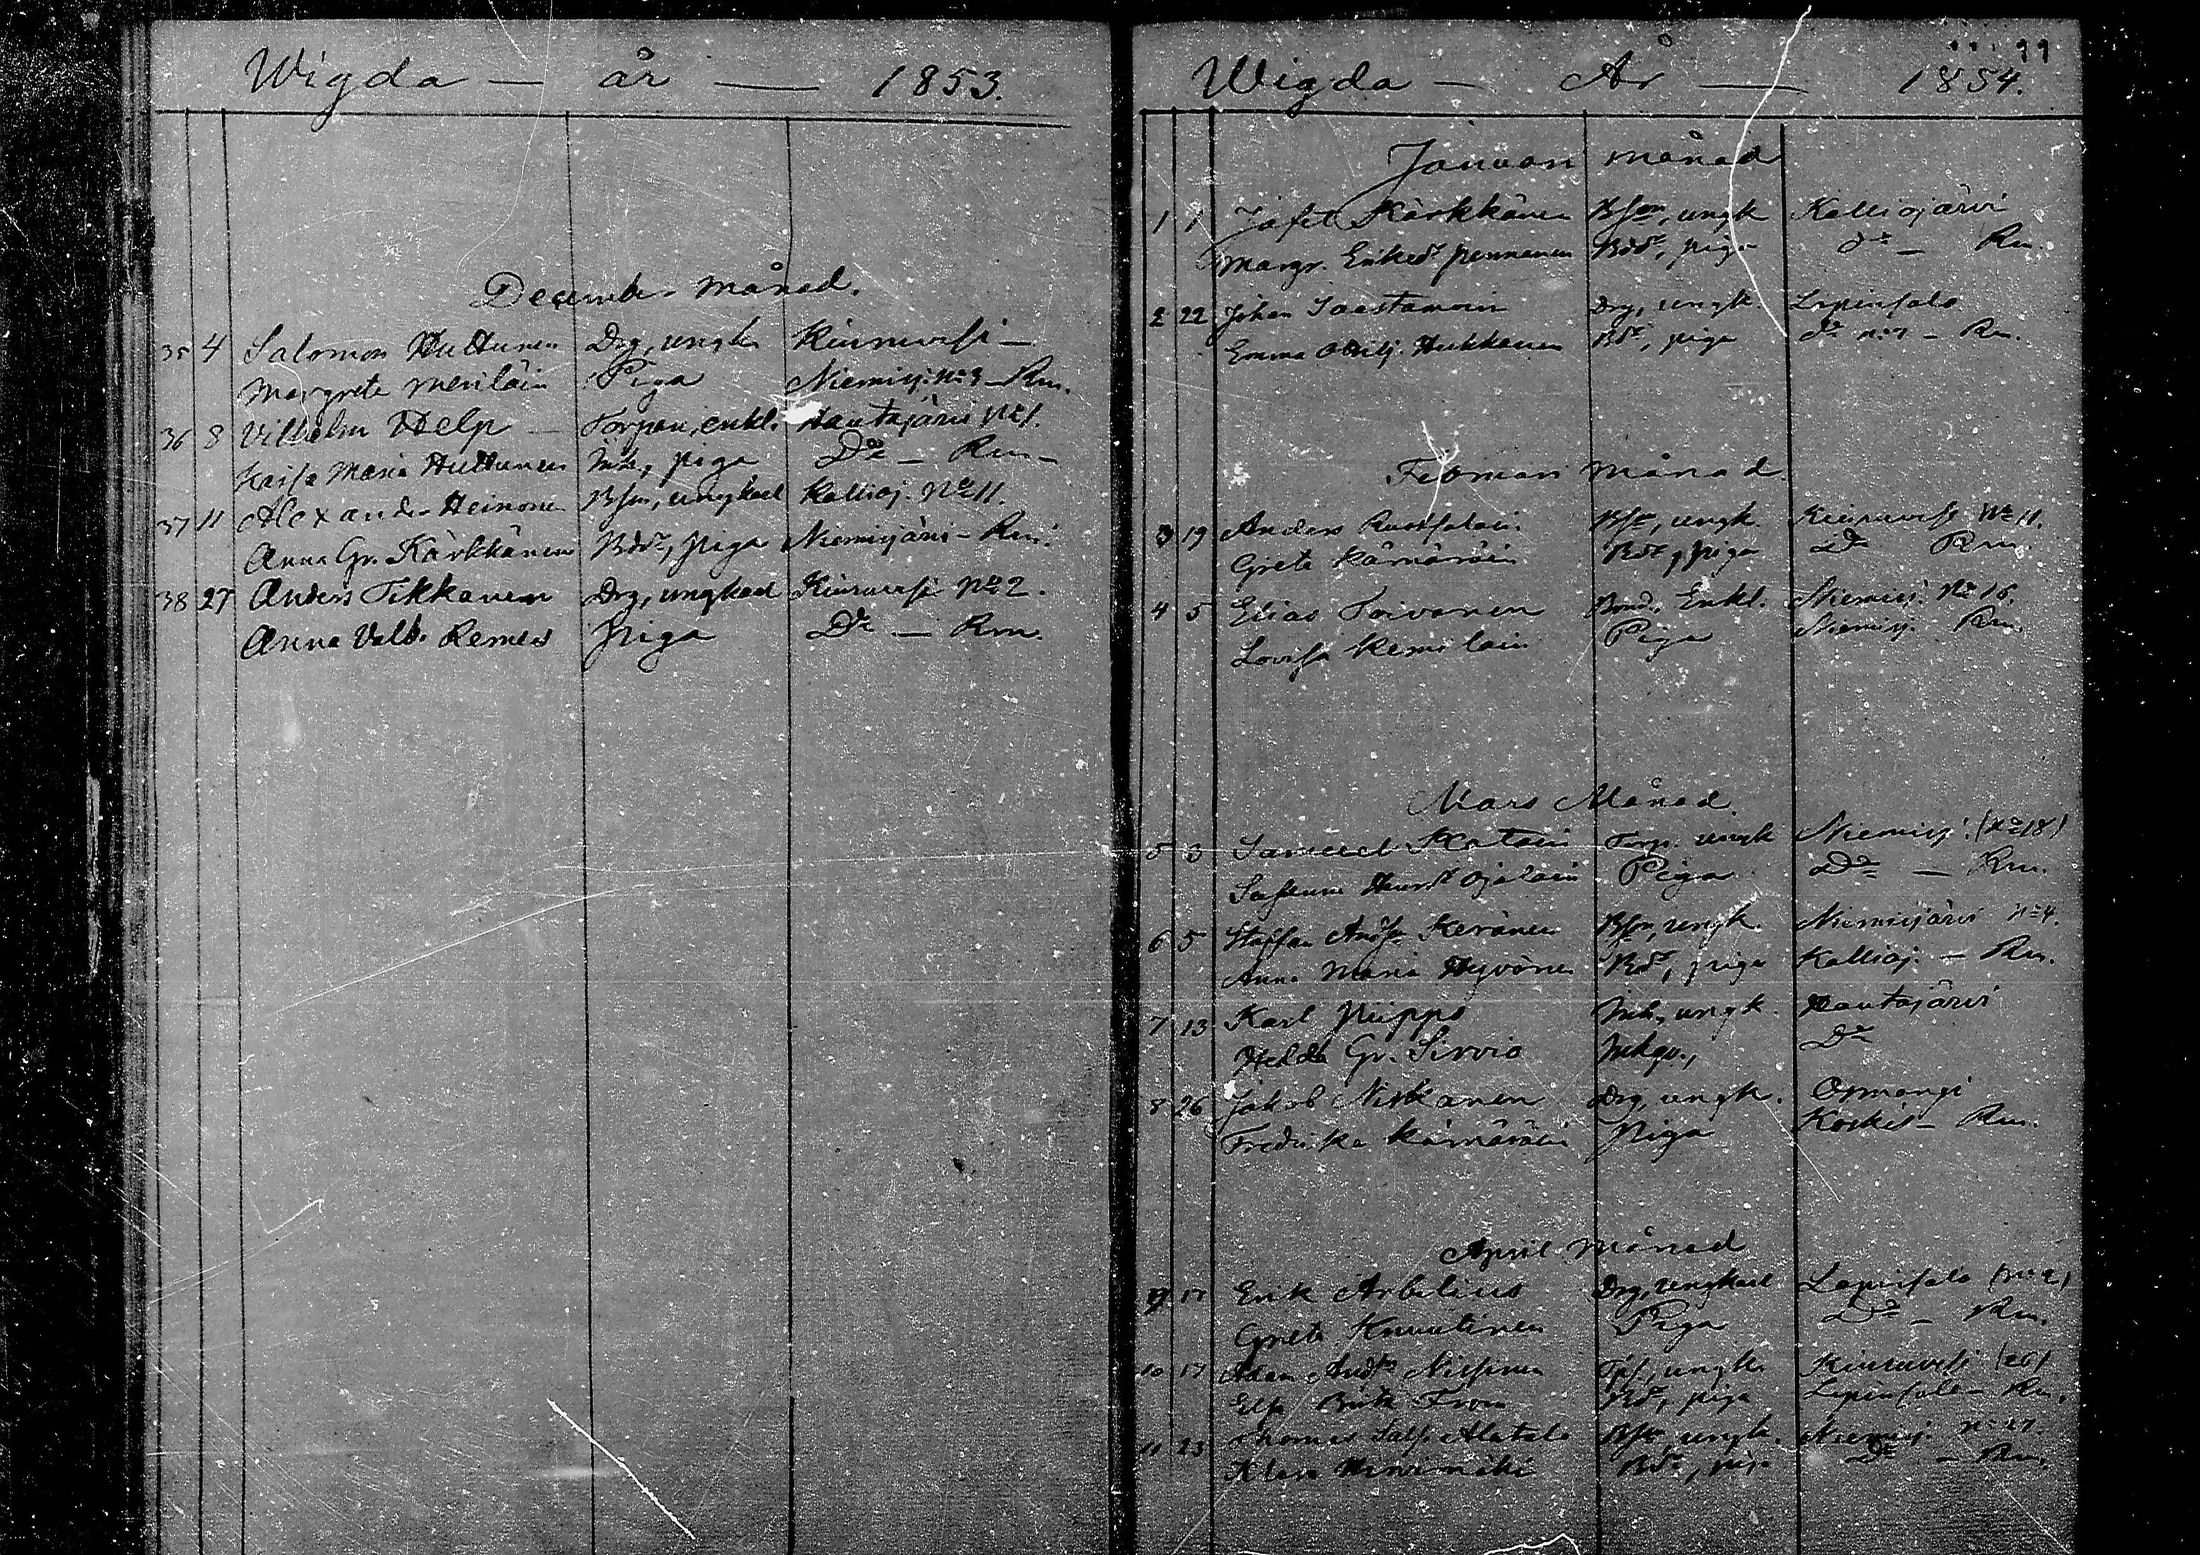 Wigda — år — 1853.
December månad.
35 4 Salomon Huttunen Drg, ungk Kiuruvesi —
Margreta Meriläin Piga Niemisj. No 9 — Rm.
36 8 Vilhelm Help — Torpari, enkl. Hautajärvi No 1.
Kaisa Maria Huttunen Inh, piga Do — Rm —
37 11 Alexander Heinonen Bson, ungkarl Kallioj. No 11.
Anna Gr. Kärkkänen Bdr, piga Niemisjärvi — Rm.
38 27 Anders Tikkanen Drg, ungkarl Kiuruvesi No 2.
Anna Valb. Remes Piga Do — Rm.
Wigda — År — 1854.
Januari månad
1 1 Jafet Kärkkänen Bson, ungk Kalliojärvi
Margr. Eriksdr Pennanen Bdr, piga do — Rm.
2 22 Johan Saastamoin Drg, ungk. Lapinsalo
Emma Ottilj. Hukkanen Bdr, piga do No 7 — Rm.
Februari månad.
3 19 Anders Bson, ungk. Kiuruvesi No 11.
Greta Kämäräin Bdr, piga Do Rm.
4 5 Elias Toivanen Bond. Enkl. Niemisj. No 16.
Lovisa Remilain Piga Niemisj. Rm.
Mars Månad
5 3 Samuel Katain Torp. ungk Niemisj. (No 18)
Susanna Henrdr Ojalain Piga Do — Rm.
6 5 Staffan Andsn Keränen Bson, ungk. Niemisjärvi No 4.
Anna Maria Hyvönen Bdr, piga Kallioj. — Rm.
7 13 Karl Piippo Inh, ungk. Hautajärvi
Hedda Gr. Sirviö Inhqv., Do
8 26 Jakob Niskanen Drg, ungk. Osmangi
Fredrika Kämäräin Piga Koskis — Rm.
April månad
9 17 Erik Arbelius Drg, ungkarl Lapinsalo (No 2)
Greta Knuutinen Piga Do — Rm.
10 17 Adam Andsn Nissinen ungk Kiuruvesi (26)
Elsa Brita From Bdr, piga Lapinsalo — Rm.
11 23 Thomas Alatalo Bson ungk. Niemisj. No 27.
Klara Bdr, piga Do — Rm.